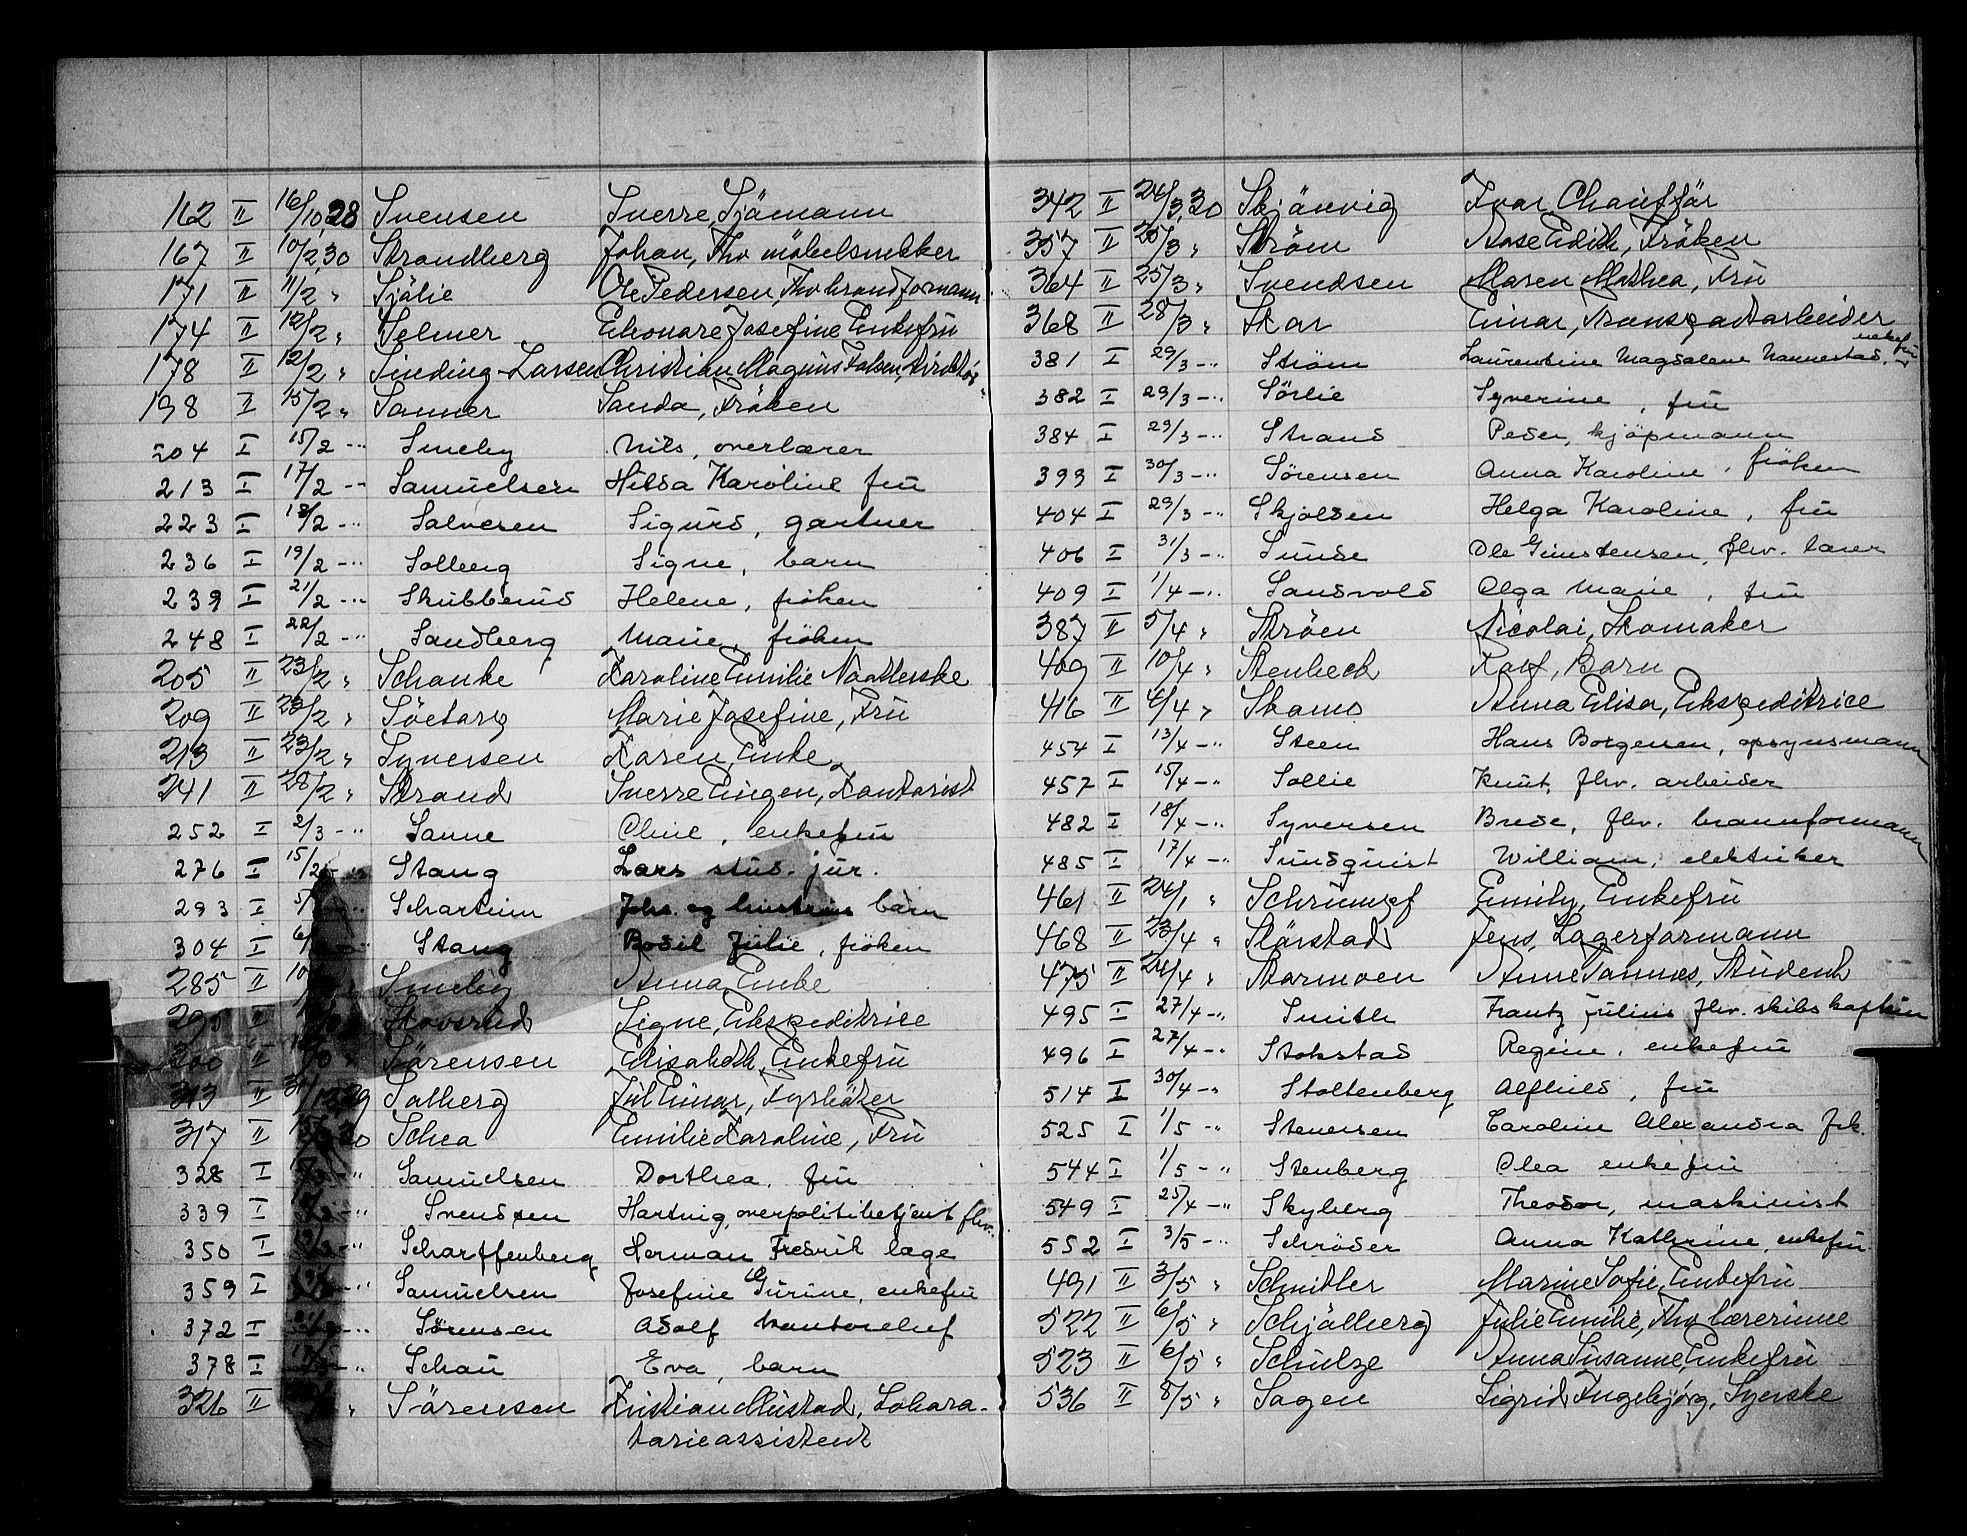 162 II 16/10,28 Svensen Sverre, Sjömann
167 II 10/2,30 Strandberg Johan, Fhv möbelsnekker
171 II 11/2 " Sjölie Ole Pedersen, Fhv brandformann
174 II 12/2 " Selmer Eleonore Josefine Enkefru
178 II 12/2 " Sinding-Larsen Christian Magnus Falsen, Direktör
198 II 15/2 " Sanner Sanda, Fröken
204 I 15/2 -"- Smeby Nils, overlærer
213 I 17/2 -"- Samuelsen Hilda Karoline fru
223 I 18/2 -"- Salvesen Sigurd, gartner
236 I 19/2 -"- Solberg Signe, barn
239 I 21/2 -"- Skubberud Helene, fröken
248 I 22/2 -"- Sandberg Marie, fröken
205 II 23/2 " Schanke Karoline Emilie Naatlerske
209 II 23/2 " Söetorp Marie Josefine, Fru
213 II 23/2 " Syversen Karen, Enke
241 II 28/2 " Strand Sverre Eugen, Kontorist
252 I 2/3 -"- Sanne Oline, enkefru
276 I 15/2 -"- Stang Lars stud. jur.
293 I Schartum Johs. og hustrus barn
304 I Stang Bodil Julie, fröken
285 II Smeby Anna, Enke
295 II Stovsrud Signe, Ekspeditrice
300 II Sörensen Elisabeth, Enkefru
313 II Solberg Jül Einar, Fyrböter
317 II Schea Emilie Karoline, Fru
328 I Samuelsen Dorthea, fru
339 I Svendsen Hartvig, overpolitibetjent fhv.
350 I Scharffenberg Herman Fredrik læge
359 I Samuelsen Josefine Gurine, enkefru
372 I Sörensen Adolf kontorchef
378 I Schau Eva, barn
326 II Sörensen Kristian Mustad, Labora-
torieassistent
342 II 24/3,30 Skjönvig Ivar, Chaufför
357 II 25/3 " Ström Aase Edith, Fröken
364 II 25/3 " Svendsen Maren Mathea, Fru
368 II 28/3 " Skar Einar, Transportarbeider
381 I 29/3 -"- Ström Laurentine Magdalene Nannestad, enkefru
382 I 29/3 -"- Sörlie Syverine, fru
384 I 29/3 -"- Strand Peder, kjöpmann
399 I 30/3 -"- Sörensen Anna Karoline, fröken
404 I 29/3 -"- Skjolden Helga Karoline, fru
406 I 31/3 -"- Sunde Ole Gunstensen, fhv. lærer
409 I 1/4 -"- Sandvold Olga Marie, fru
387 II 5/4 " Ströen Nicolai, Skomaker
409 II 10/4 " Stenbeck Rolf, Barn
416 II 6/4 " Skamo Anna Elisa, Ekspeditrice
454 I 13/4 -"- Steen Hans Borgersen, opsynsmann
457 I 15/4 -"- Sollie Knut, fhv. arbeider
482 I 18/4 -"- Syversen Brede, fhv. brannformann
485 I 17/4 -"- Sundquist William, elektriker
461 II 24/1 " Schrumpf Emily, Enkefru
468 II 23/4 " Slörstad Jens, Lagerformann
475 II 24/4 " Stormoen Anne Sannæs, Student
495 I 27/4 -"- Smith Frantz Julius fhv. skibskaptein
496 I 27/4 -"- Stokstad Regine, enkefru
514 I 30/4 -"- Stoltenberg Alfhild, fru
525 I 1/5 -"- Stenersen Caroline Alexandra frk.
544 I 1/5 -"- Stenberg Olea enkefru
549 I 25/4 -"- Skyberg Theodor, maskinist
552 I 3/5 -"- Schröder Anna Kathrine, enkefru
491 II 3/5 " Schnitler Marine Sofie, Enkefru
522 II 6/5 " Schjölberg Julie Emilie, Fhv lærerinne
523 II 6/5 " Schulze Anna Susanne, Enkefru
536 II 8/5 " Sagen Sigrid Ingebjörg, Syerske